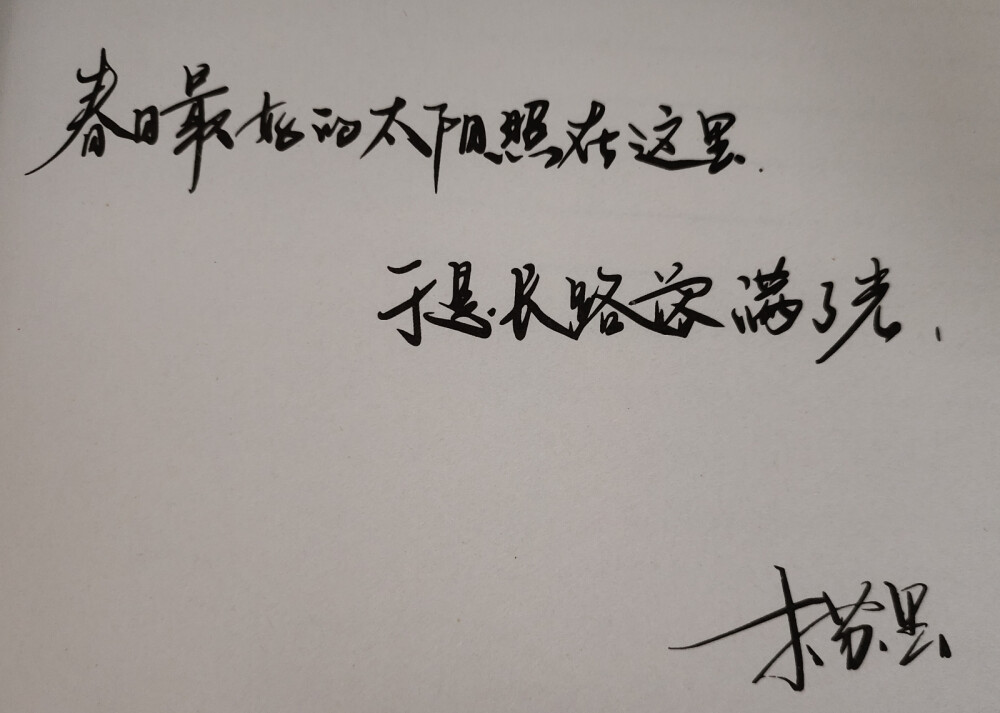 春日最好的太阳照在这里.
于是长路落满了光,
木苏里